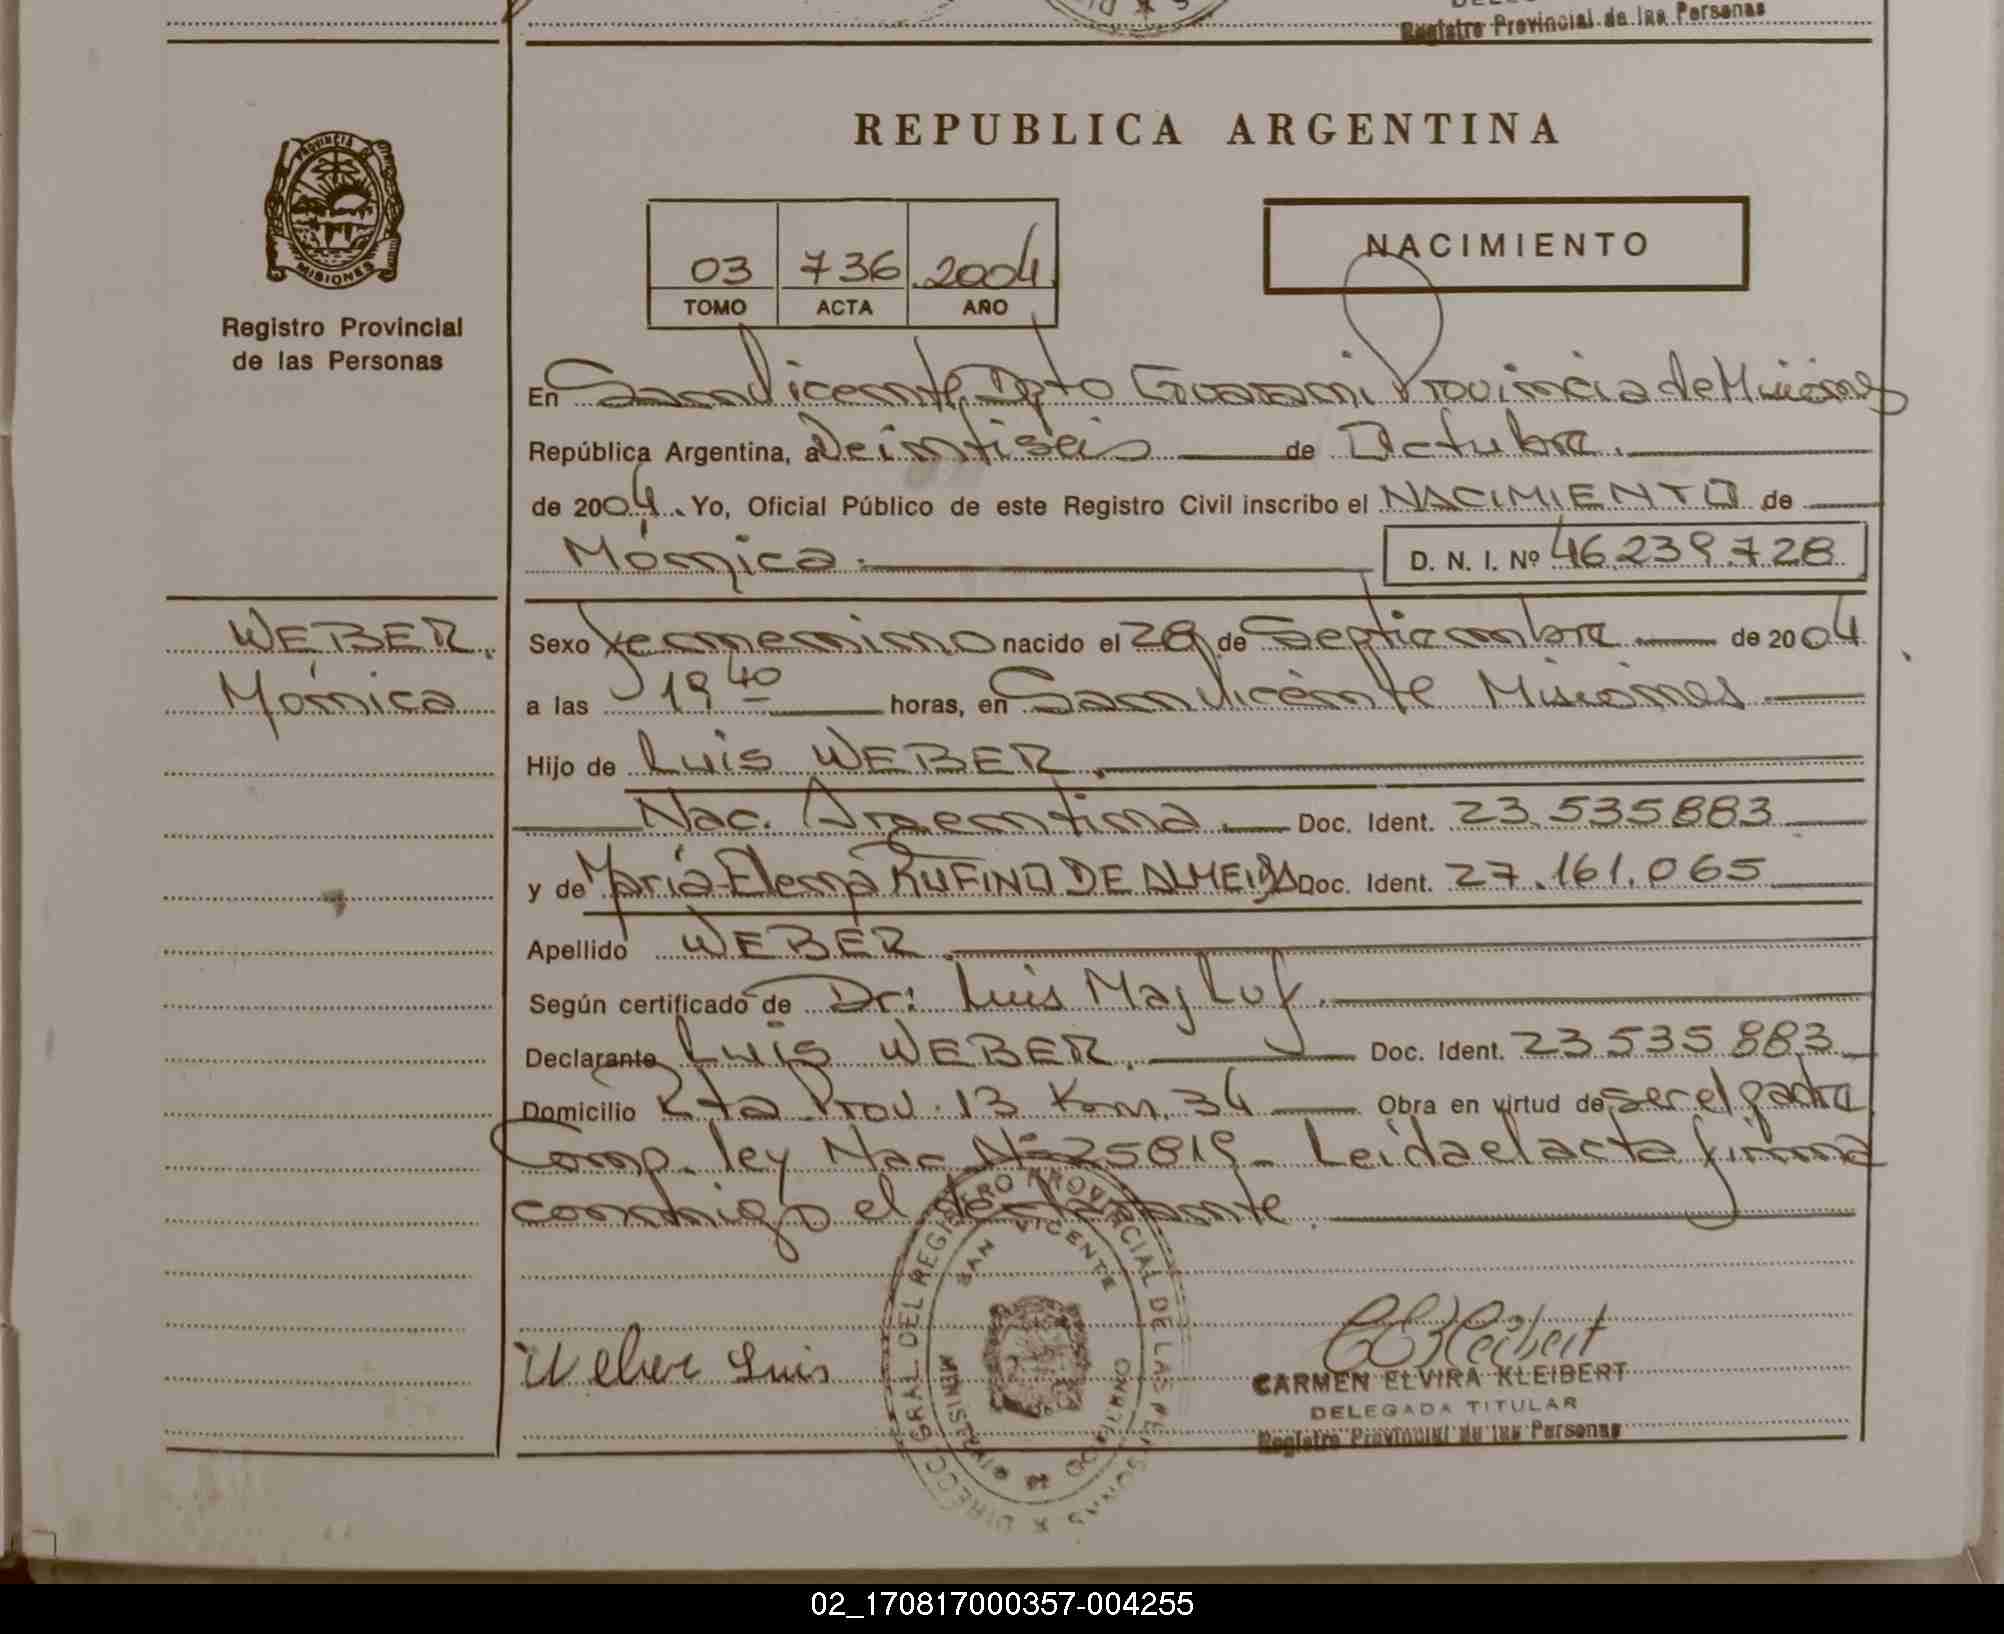 Registro Provincial de las Personas
REPUBLICA ARGENTINA
PROVINCIA DE
MISIONES
Registro Provincial
de las Personas
03 736 2004
TOMO ACTA AÑO
NACIMIENTO
En San Vicente, Dpto Guarani Provincia de Misiones
República Argentina, a Veintiseis de Octubre.
de 2004. Yo, Oficial Público de este Registro Civil inscribo el NACIMIENTO de
Mónica. D. N. I. Nº 46.239.728
WEBER.
Mónica
Sexo femenino nacido el 28 de Septiembre de 2004
a las 19 40 horas, en San Vicente Misiones
Hijo de Luis WEBER.
Nac. Argentina. Doc. Ident. 23.535883
y de María Elena RUFINO DE ALMEIDA Doc. Ident. 27.161.065
Apellido WEBER.
Según certificado de Dr: Luis Majluf.
Declarante Luis WEBER. Doc. Ident. 23 535 883
Domicilio Rta Prov. 13 Km. 34 Obra en virtud de ser el padre
Comp. ley Nac Nº 25819_ Leida el acta firma
conmigo el declarante.
Weber Luis
DIRECC. GRAL. DEL REGISTRO PROVINCIAL DE LAS PERSONAS
SAN VICENTE
MINISTERIO DE GOBIERNO
CEKleibert
CARMEN ELVIRA KLEIBERT
DELEGADA TITULAR
Registro Provincial de las Personas
02_170817000357-004255